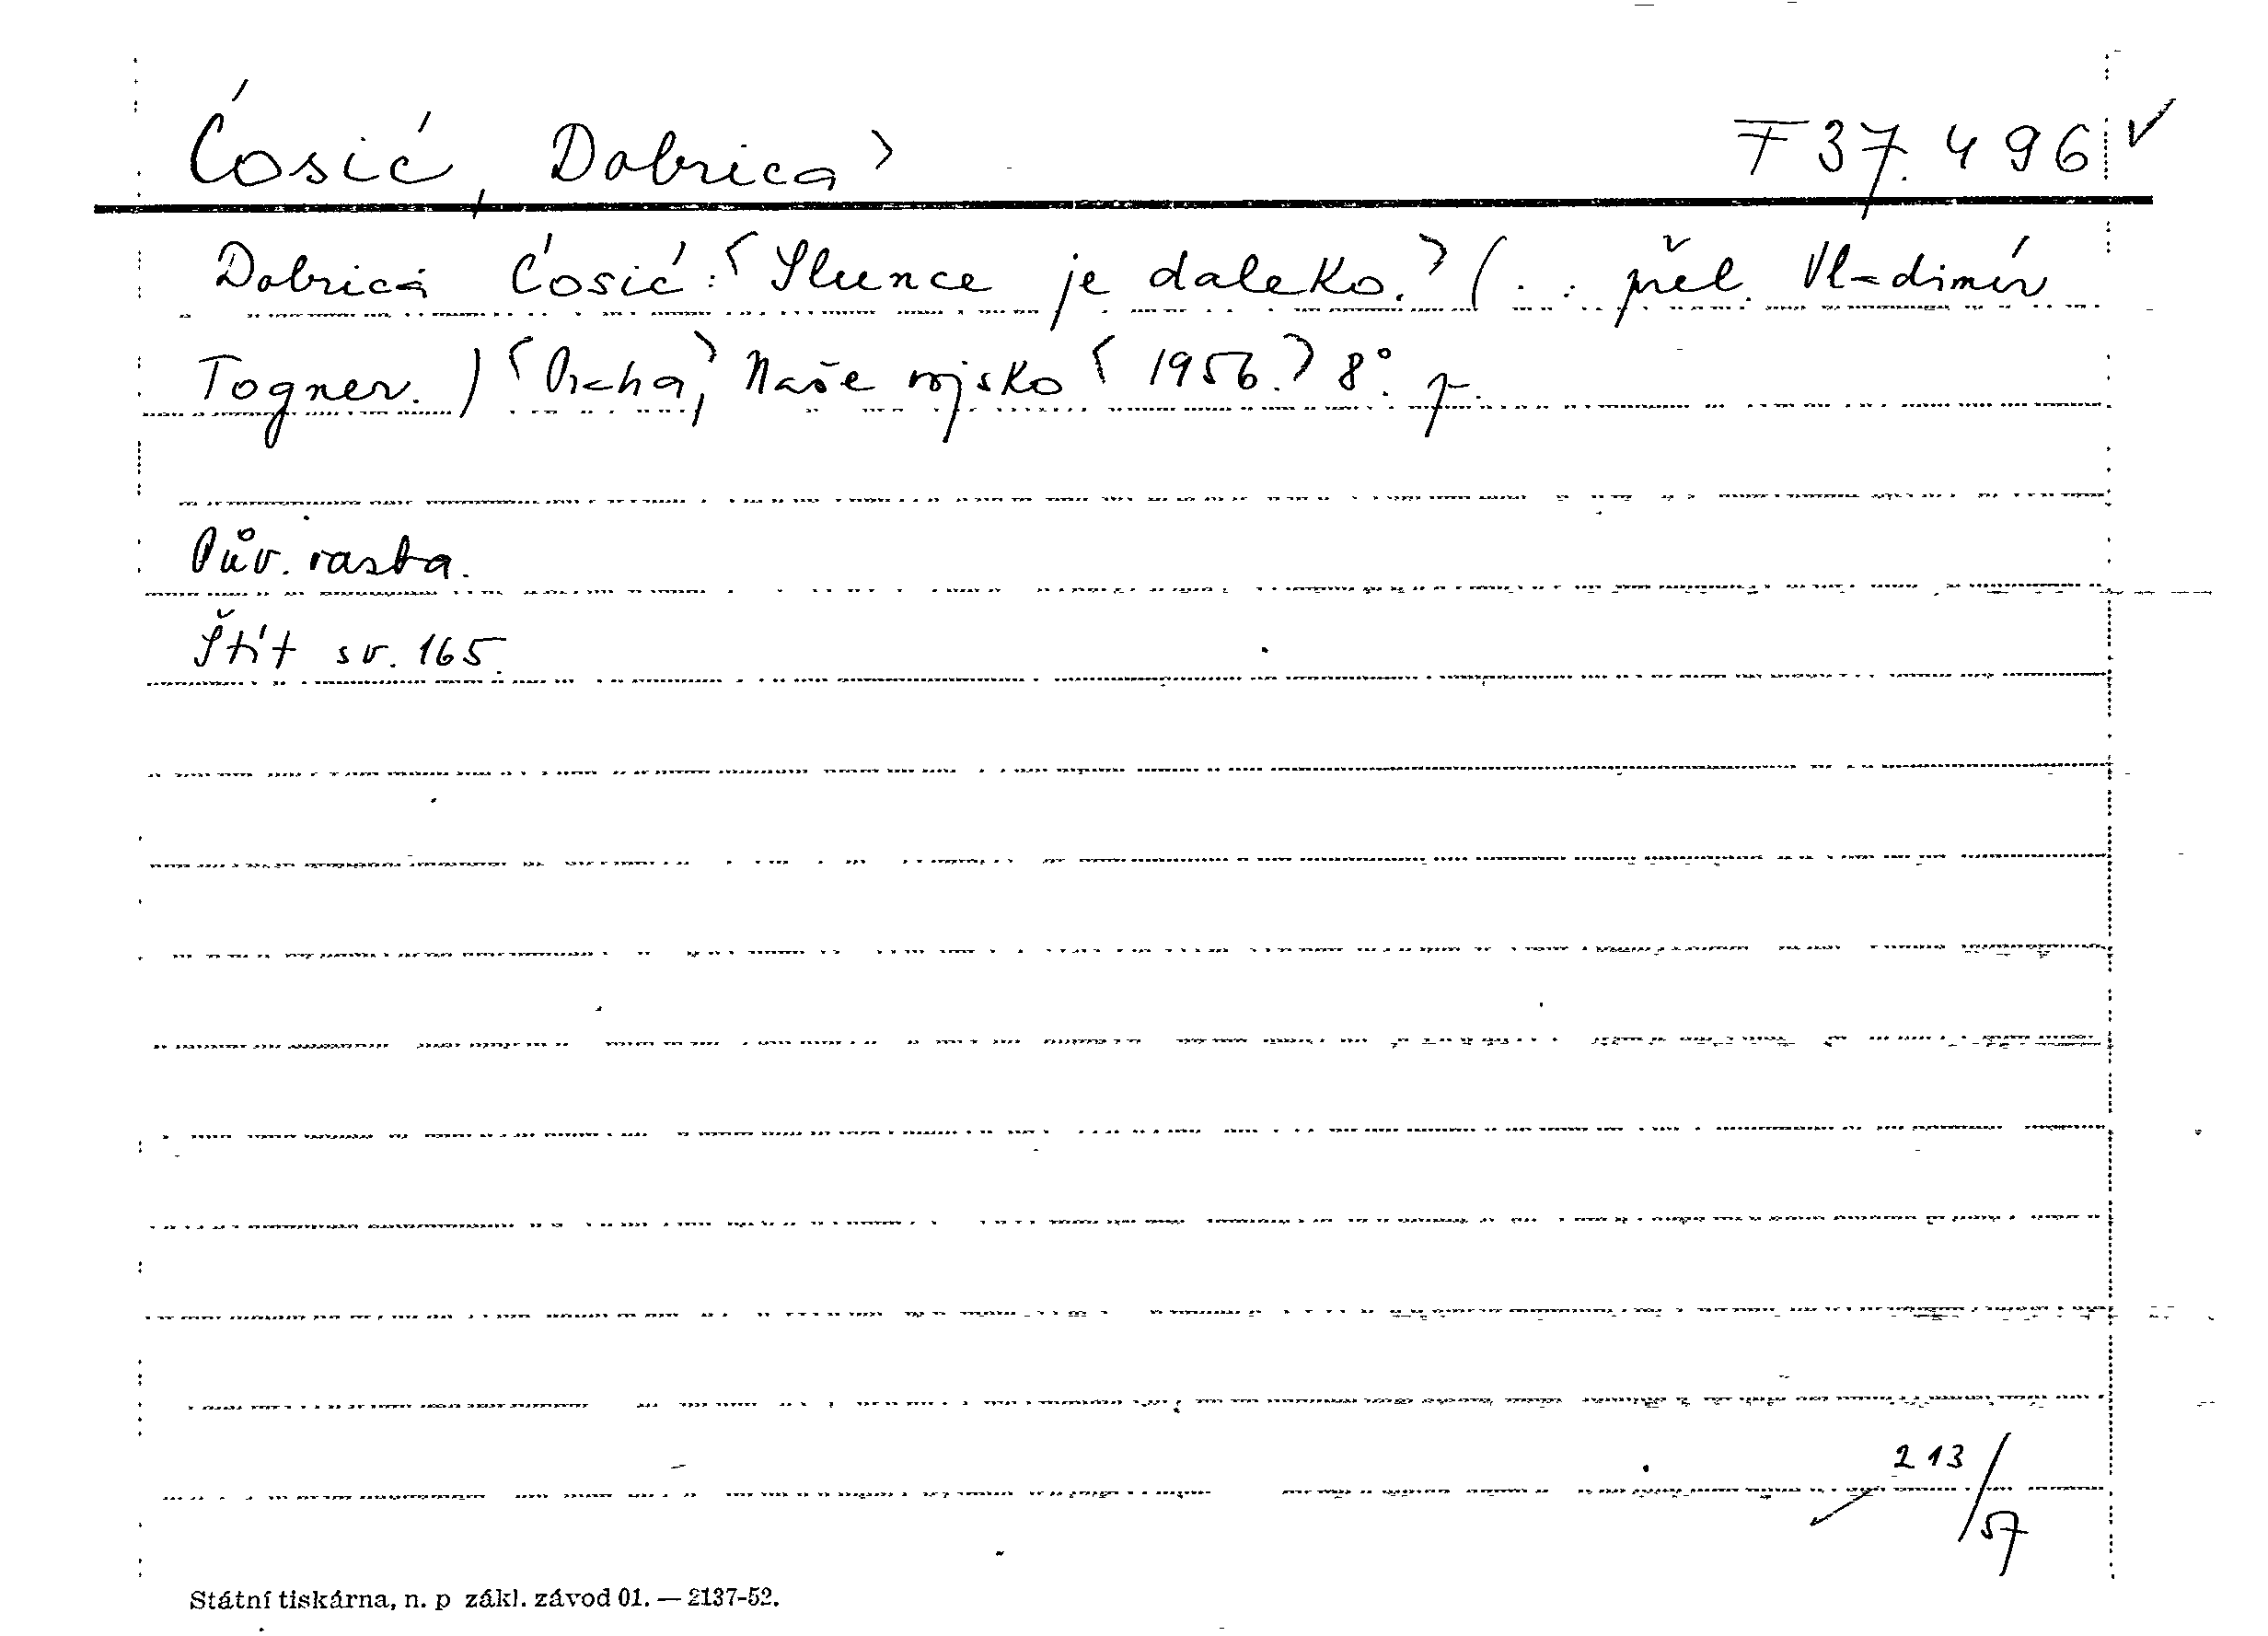 Ćosić, Dobrica > F 37.496 ✓
Dobrica Ćosić: <Slunce je daleko.> (. . přel. Vladimír
Togner.) <Praha,> Naše vojsko <1956.> 8°. p.
Pův. vasba.
Štít sv. 165.
213/57
Státní tiskárna, n. p zákl. závod 01. — 2137-52.